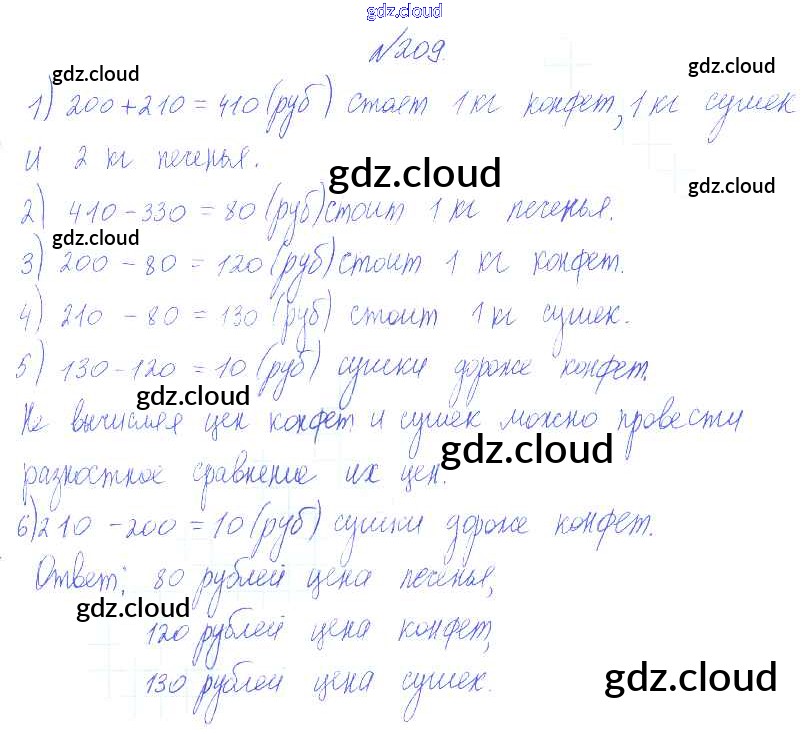 gdz.cloud
№209.
gdz.cloud
gdz.cloud
1) 200+210=410(руб) стоят 1кг конфет, 1 кг сушек
и 2 кг печенья.
gdz.cloud
gdz.cloud
2) 410-330=80(руб) стоит 1 кг печенья.
gdz.cloud
3) 200-80=120(руб) стоит 1 кг конфет.
4) 210-80=130(руб) стоит 1кг сушек.
5) 130-120=10(руб) сушки дороже конфет.
gdz.cloud
Не вычисляя цен конфет и сушек можно провести
gdz.cloud
разностное сравнение их цен.
6) 210-200=10(руб) сушки дороже конфет.
Ответ: 80 рублей цена печенья,
gdz.cloud
120 рублей цена конфет,
130 рублей цена сушек.
gdz.cloud